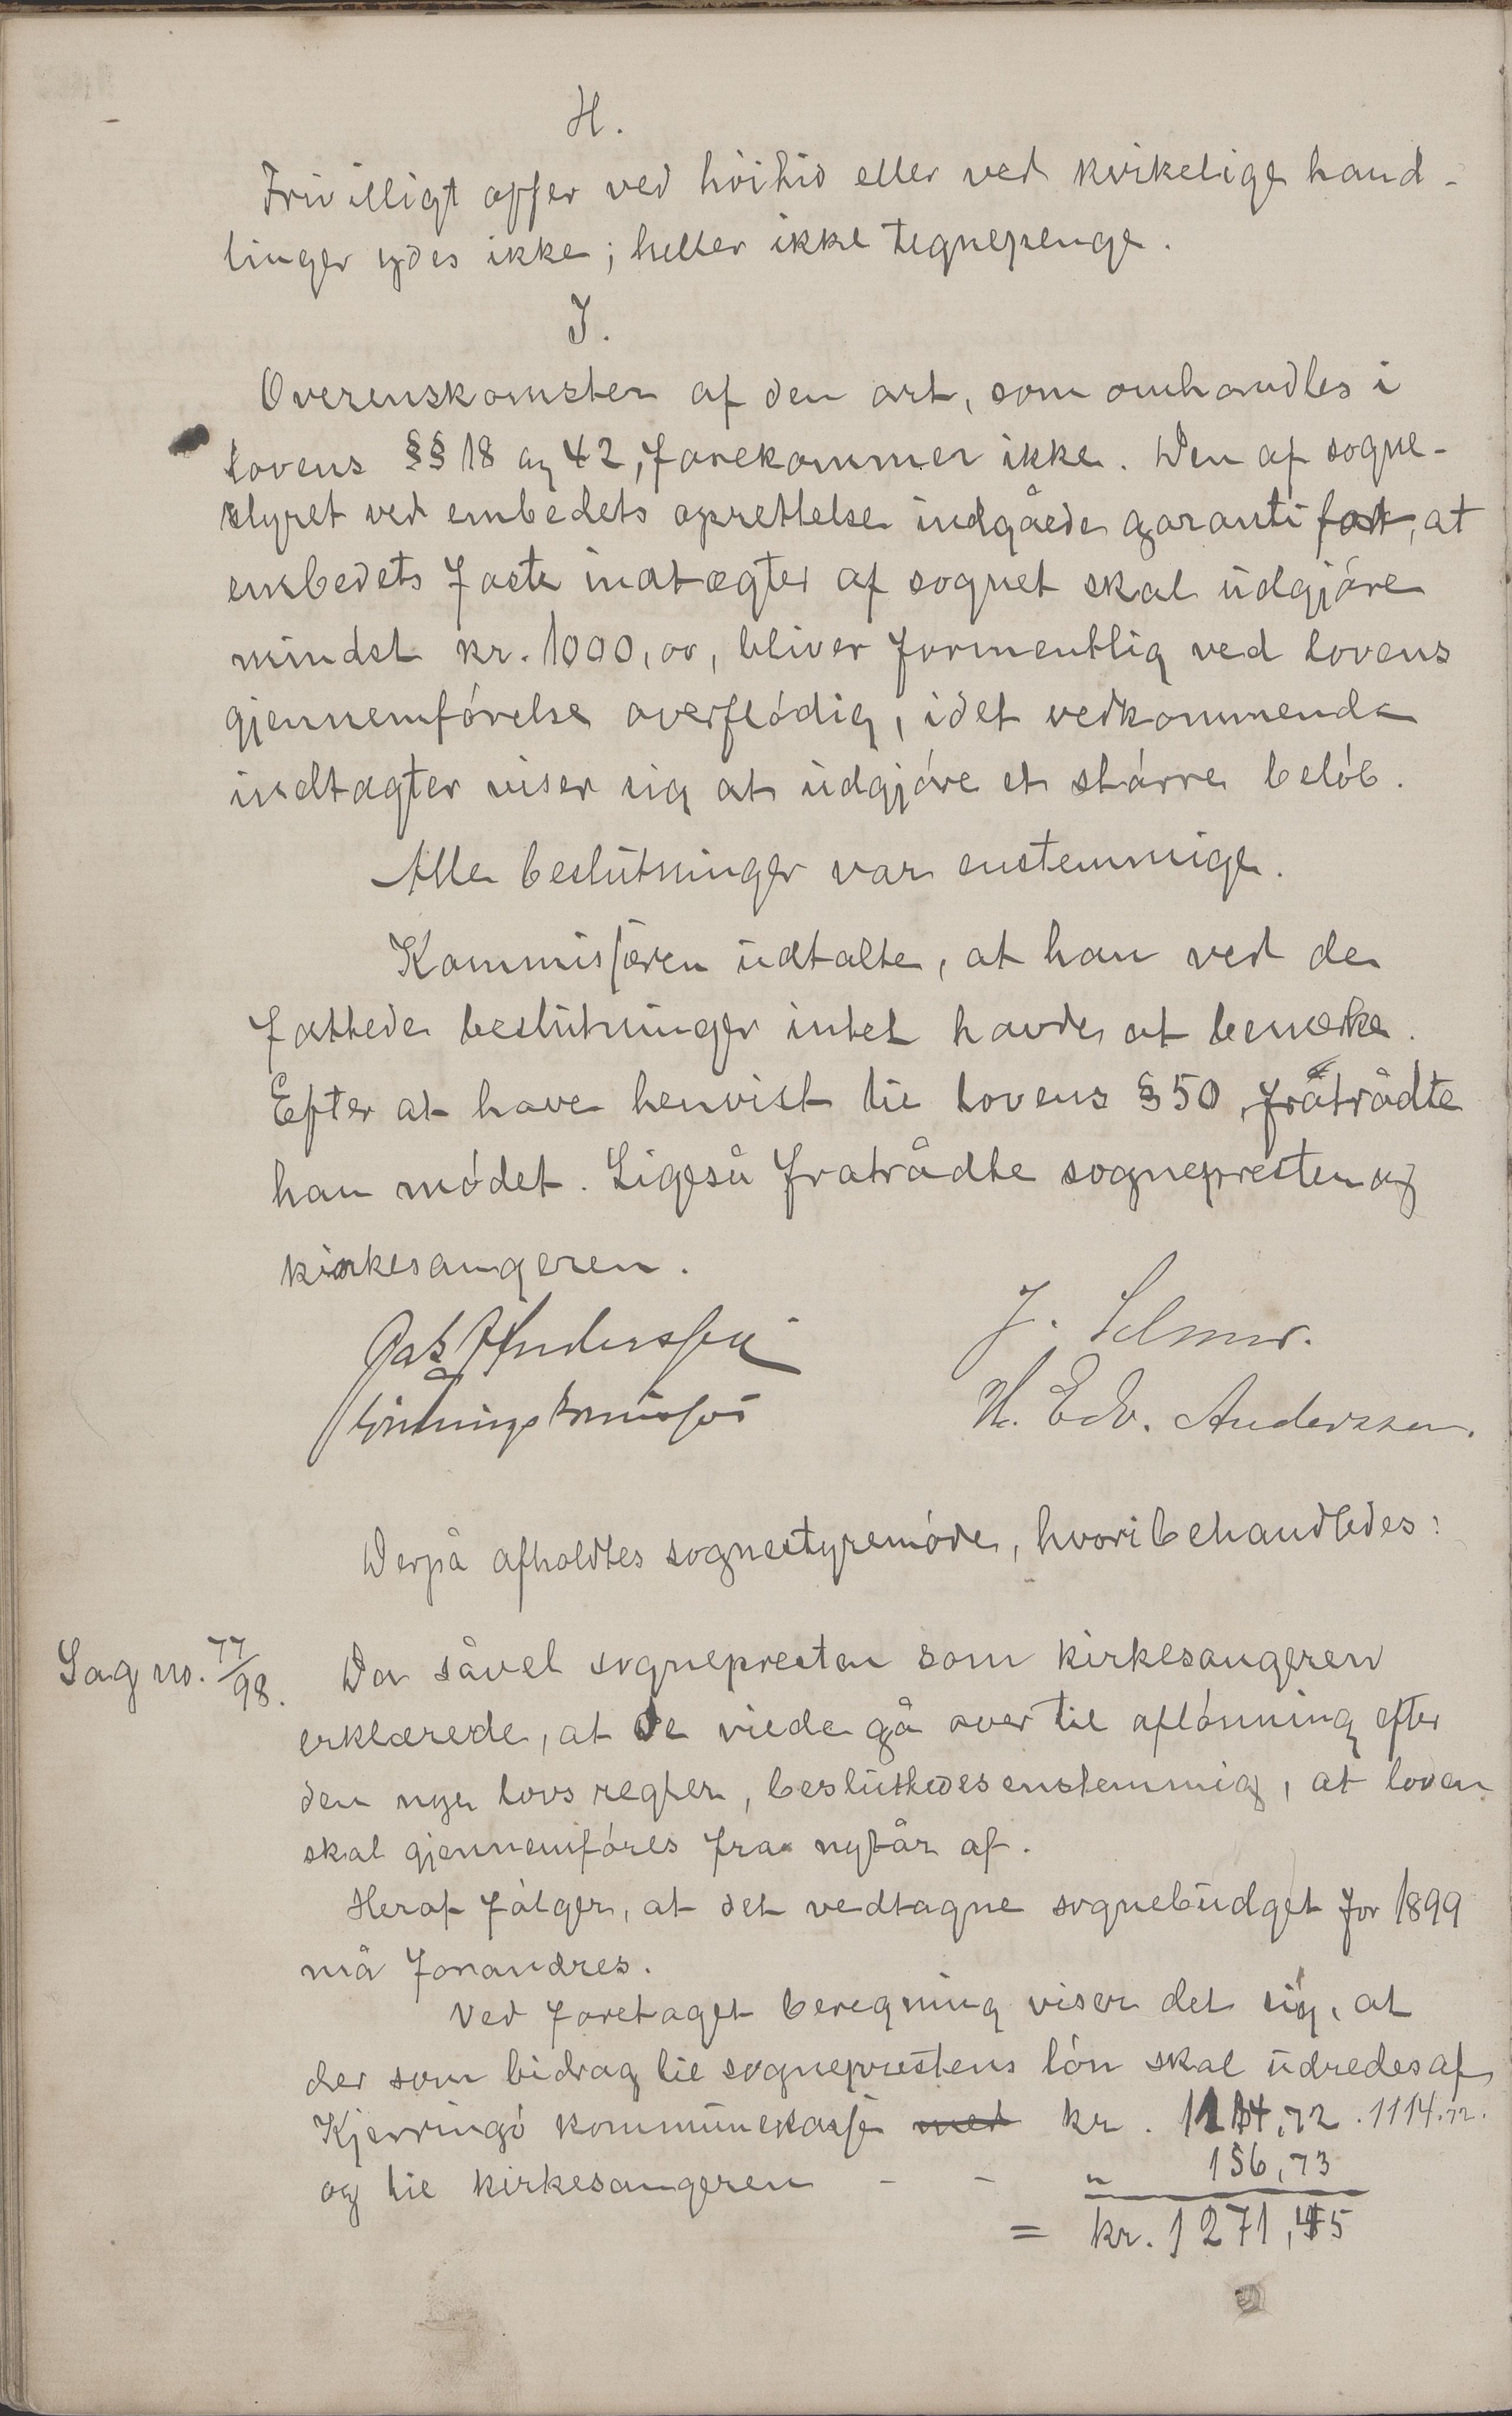 H.
Frivilligt offer ved höitid eller ved kirkelige hand-
linger ydes ikke; heller ikke tegnepenge.
I.
Overenskomster af den art, som omhandles i
lovens §§ 18 og 42, forekommer ikke. Den af sogne-
styret ved embedets oprettelse indgåede garanti for, at
embedets faste indtægter af sognet skal udgjøre
mindst kr. 1000,00, bliver formentlig ved lovens
gjennemførelse overflødig, idet vedkommende
indtægter viser sig at udgjøre et større beløb.
Alle beslutninger var enstemmige.
Kommissæren udtalte, at han ved de
fattede beslutninger intet havde at bemerke.
Efter at have henvist til lovens § 50 fratrådte
han mødet. Ligeså fratrådte sognepresten og
kirkesangeren.
J. Selmer.
H. Edv. Anderssen.
Derpå afholdtes sognestyremøde, hvori behandledes:
Sag no. 77/98.
Da såvel sognepresten som kirkesangeren
erklærede, at de vilde gå over til aflønning efter
den nye lovs regler, besluttedes enstemmig, at loven
skal gjennemføres fra nytår af.
Heraf følger, at det vedtagne sognebudget for 1899
må forandres.
Ved foretaget beregning viser det sig, at
der som bidrag til sogneprestens løn skal udredes af
Kjerringø kommunekasse med kr. 1114,72. 1114,72.
og til kirkesangeren - - " 156,73
= kr. 1271,45